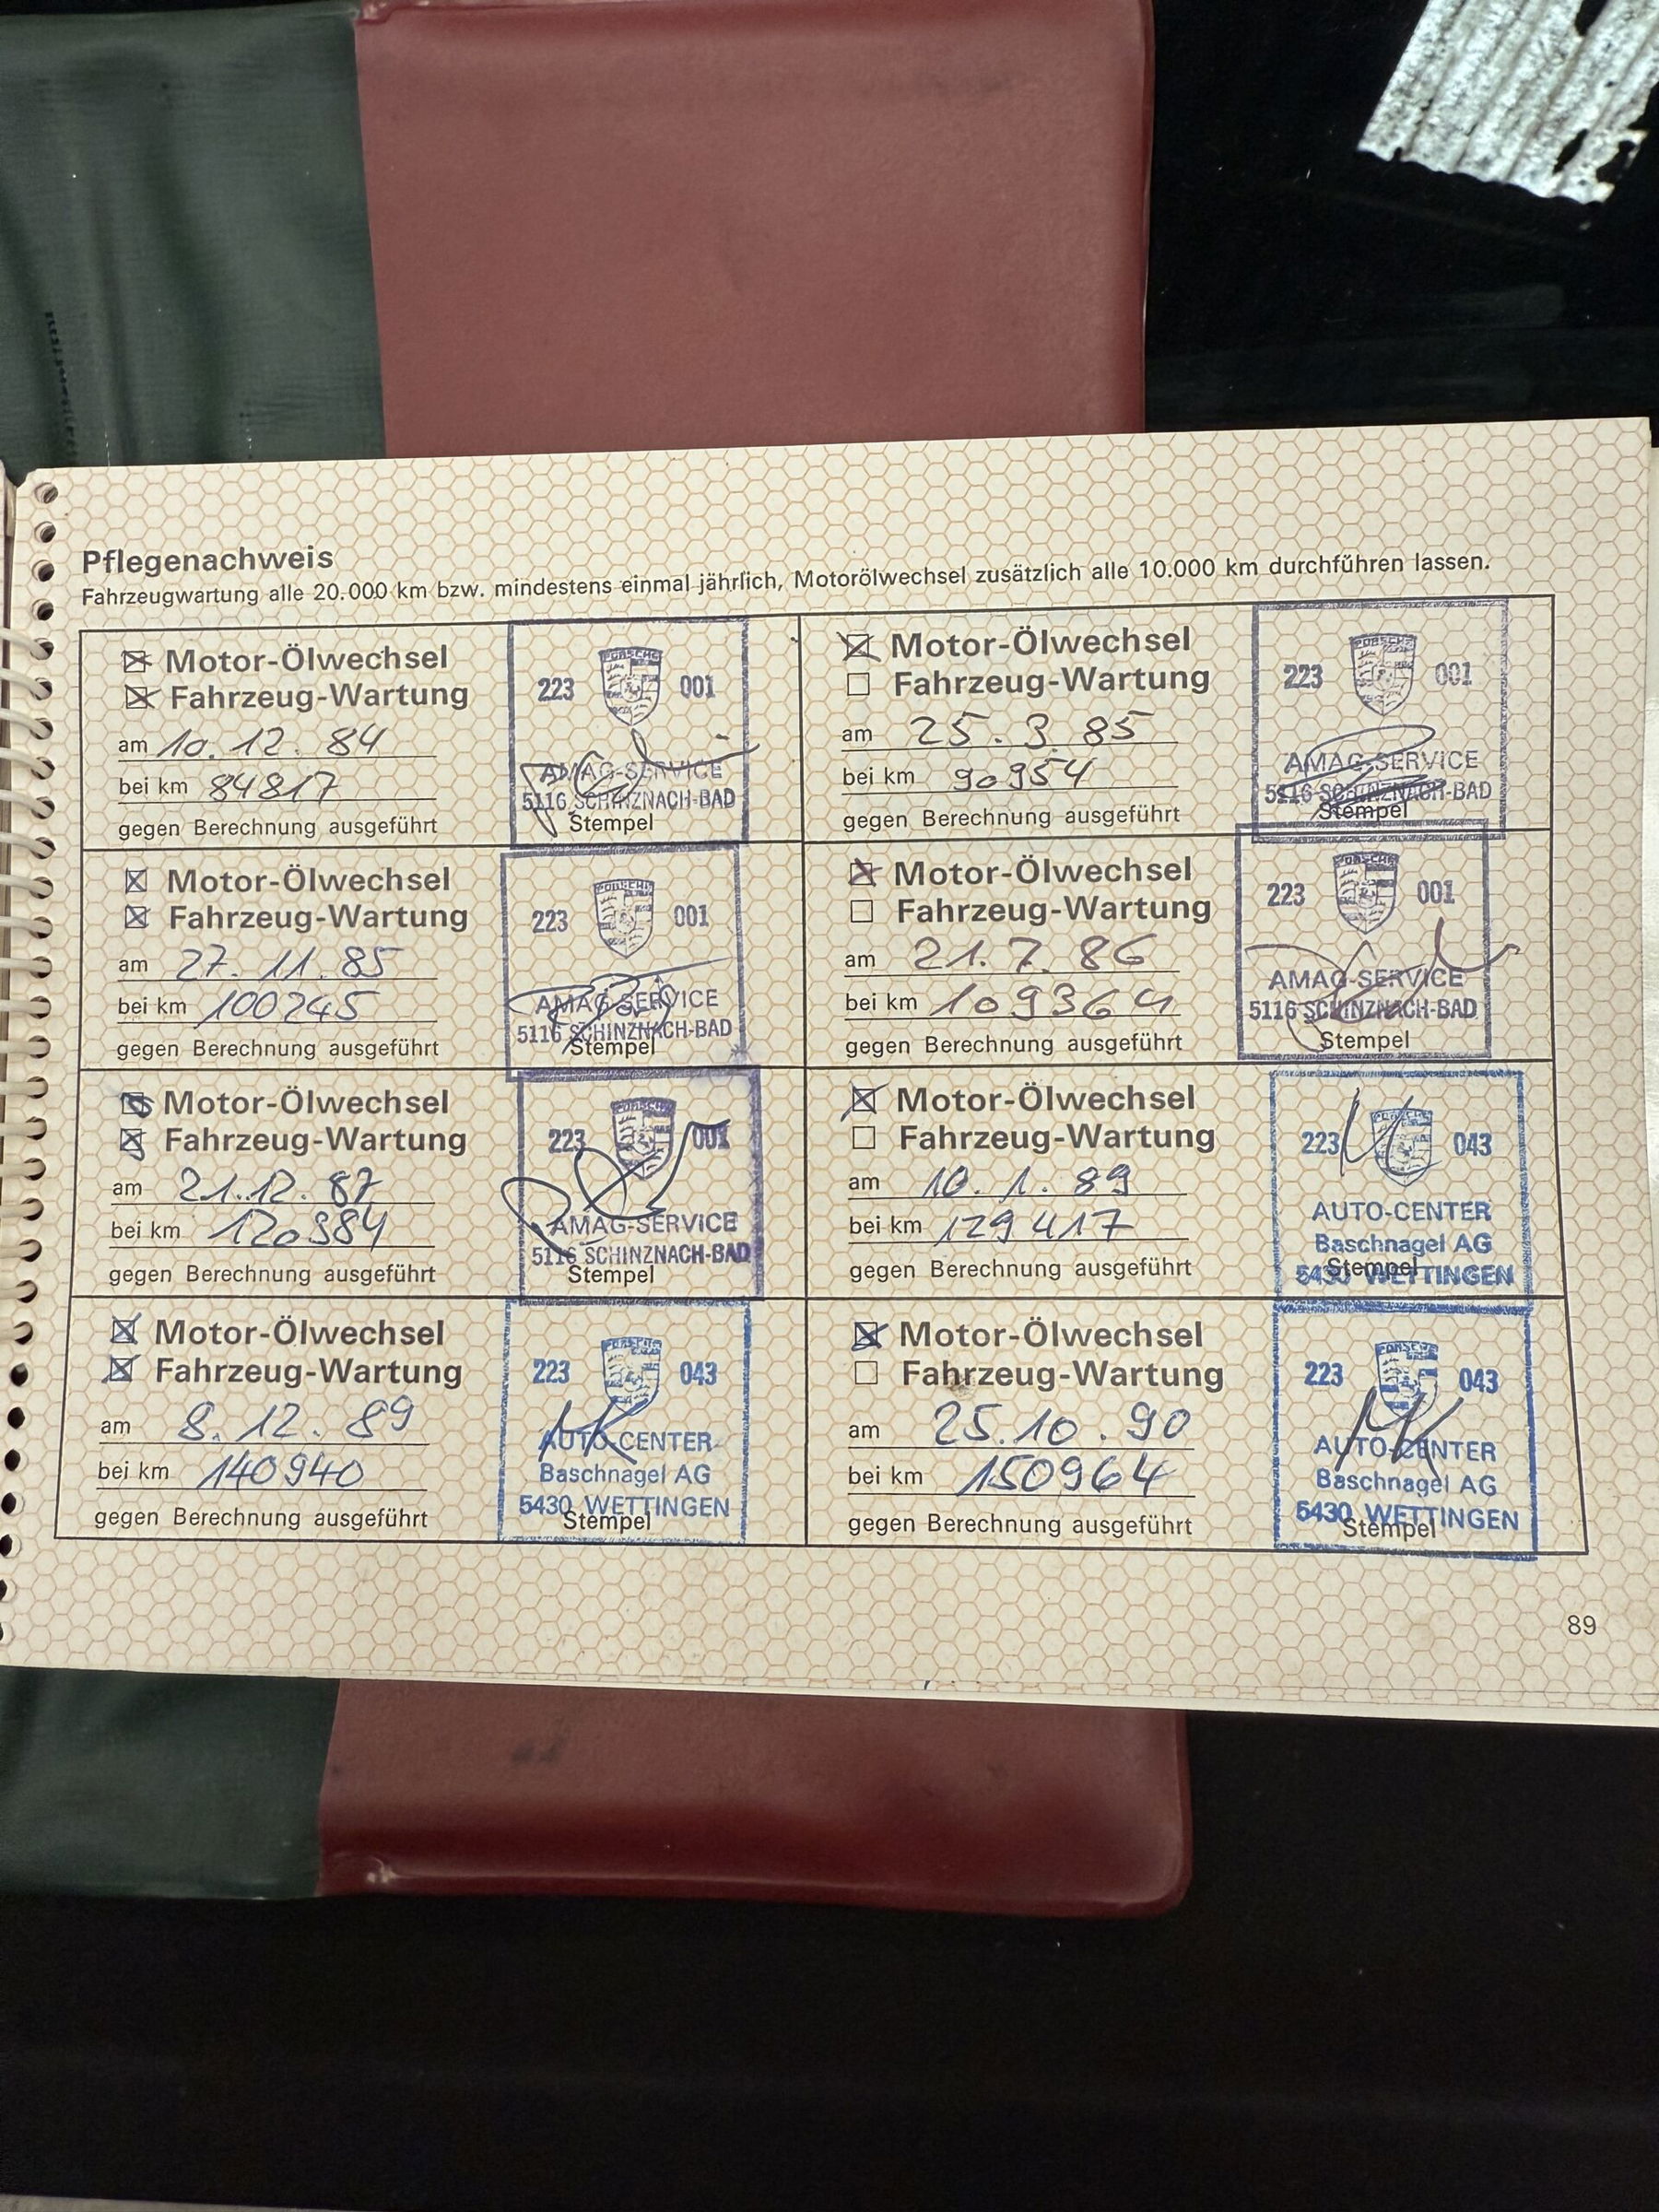 Pflegenachweis
Fahrzeugwartung alle 20.000 km bzw. mindestens einmal jährlich, Motorölwechsel zusätzlich alle 10.000 km durchführen lassen.
Motor-Ölwechsel
Fahrzeug-Wartung
am 10. 12. 84
bei km 84817
gegen Berechnung ausgeführt
PORSCHE
223 001
AMAG-SERVICE
5116 SCHINZNACH-BAD
Stempel
Motor-Ölwechsel
Fahrzeug-Wartung
am 25. 3. 85
bei km 90954
gegen Berechnung ausgeführt
PORSCHE
223 001
AMAG-SERVICE
5116 SCHINZNACH-BAD
Stempel
Motor-Ölwechsel
Fahrzeug-Wartung
am 27. 11. 85
bei km 100245
gegen Berechnung ausgeführt
PORSCHE
223 001
AMAG-SERVICE
5116 SCHINZNACH-BAD
Stempel
Motor-Ölwechsel
Fahrzeug-Wartung
am 21. 7. 86
bei km 109364
gegen Berechnung ausgeführt
PORSCHE
223 001
AMAG-SERVICE
5116 SCHINZNACH-BAD
Stempel
Motor-Ölwechsel
Fahrzeug-Wartung
am 21. 12. 87
bei km 120984
gegen Berechnung ausgeführt
PORSCHE
223 001
AMAG-SERVICE
5116 SCHINZNACH-BAD
Stempel
Motor-Ölwechsel
Fahrzeug-Wartung
am 10. 1. 89
bei km 129417
gegen Berechnung ausgeführt
PORSCHE
223 043
AUTO-CENTER
Baschnagel AG
5430 WETTINGEN
Stempel
Motor-Ölwechsel
Fahrzeug-Wartung
am 8. 12. 89
bei km 140940
gegen Berechnung ausgeführt
PORSCHE
223 043
AUTO-CENTER
Baschnagel AG
5430 WETTINGEN
Stempel
Motor-Ölwechsel
Fahrzeug-Wartung
am 25. 10. 90
bei km 150964
gegen Berechnung ausgeführt
PORSCHE
223 043
AUTO-CENTER
Baschnagel AG
5430 WETTINGEN
Stempel
89